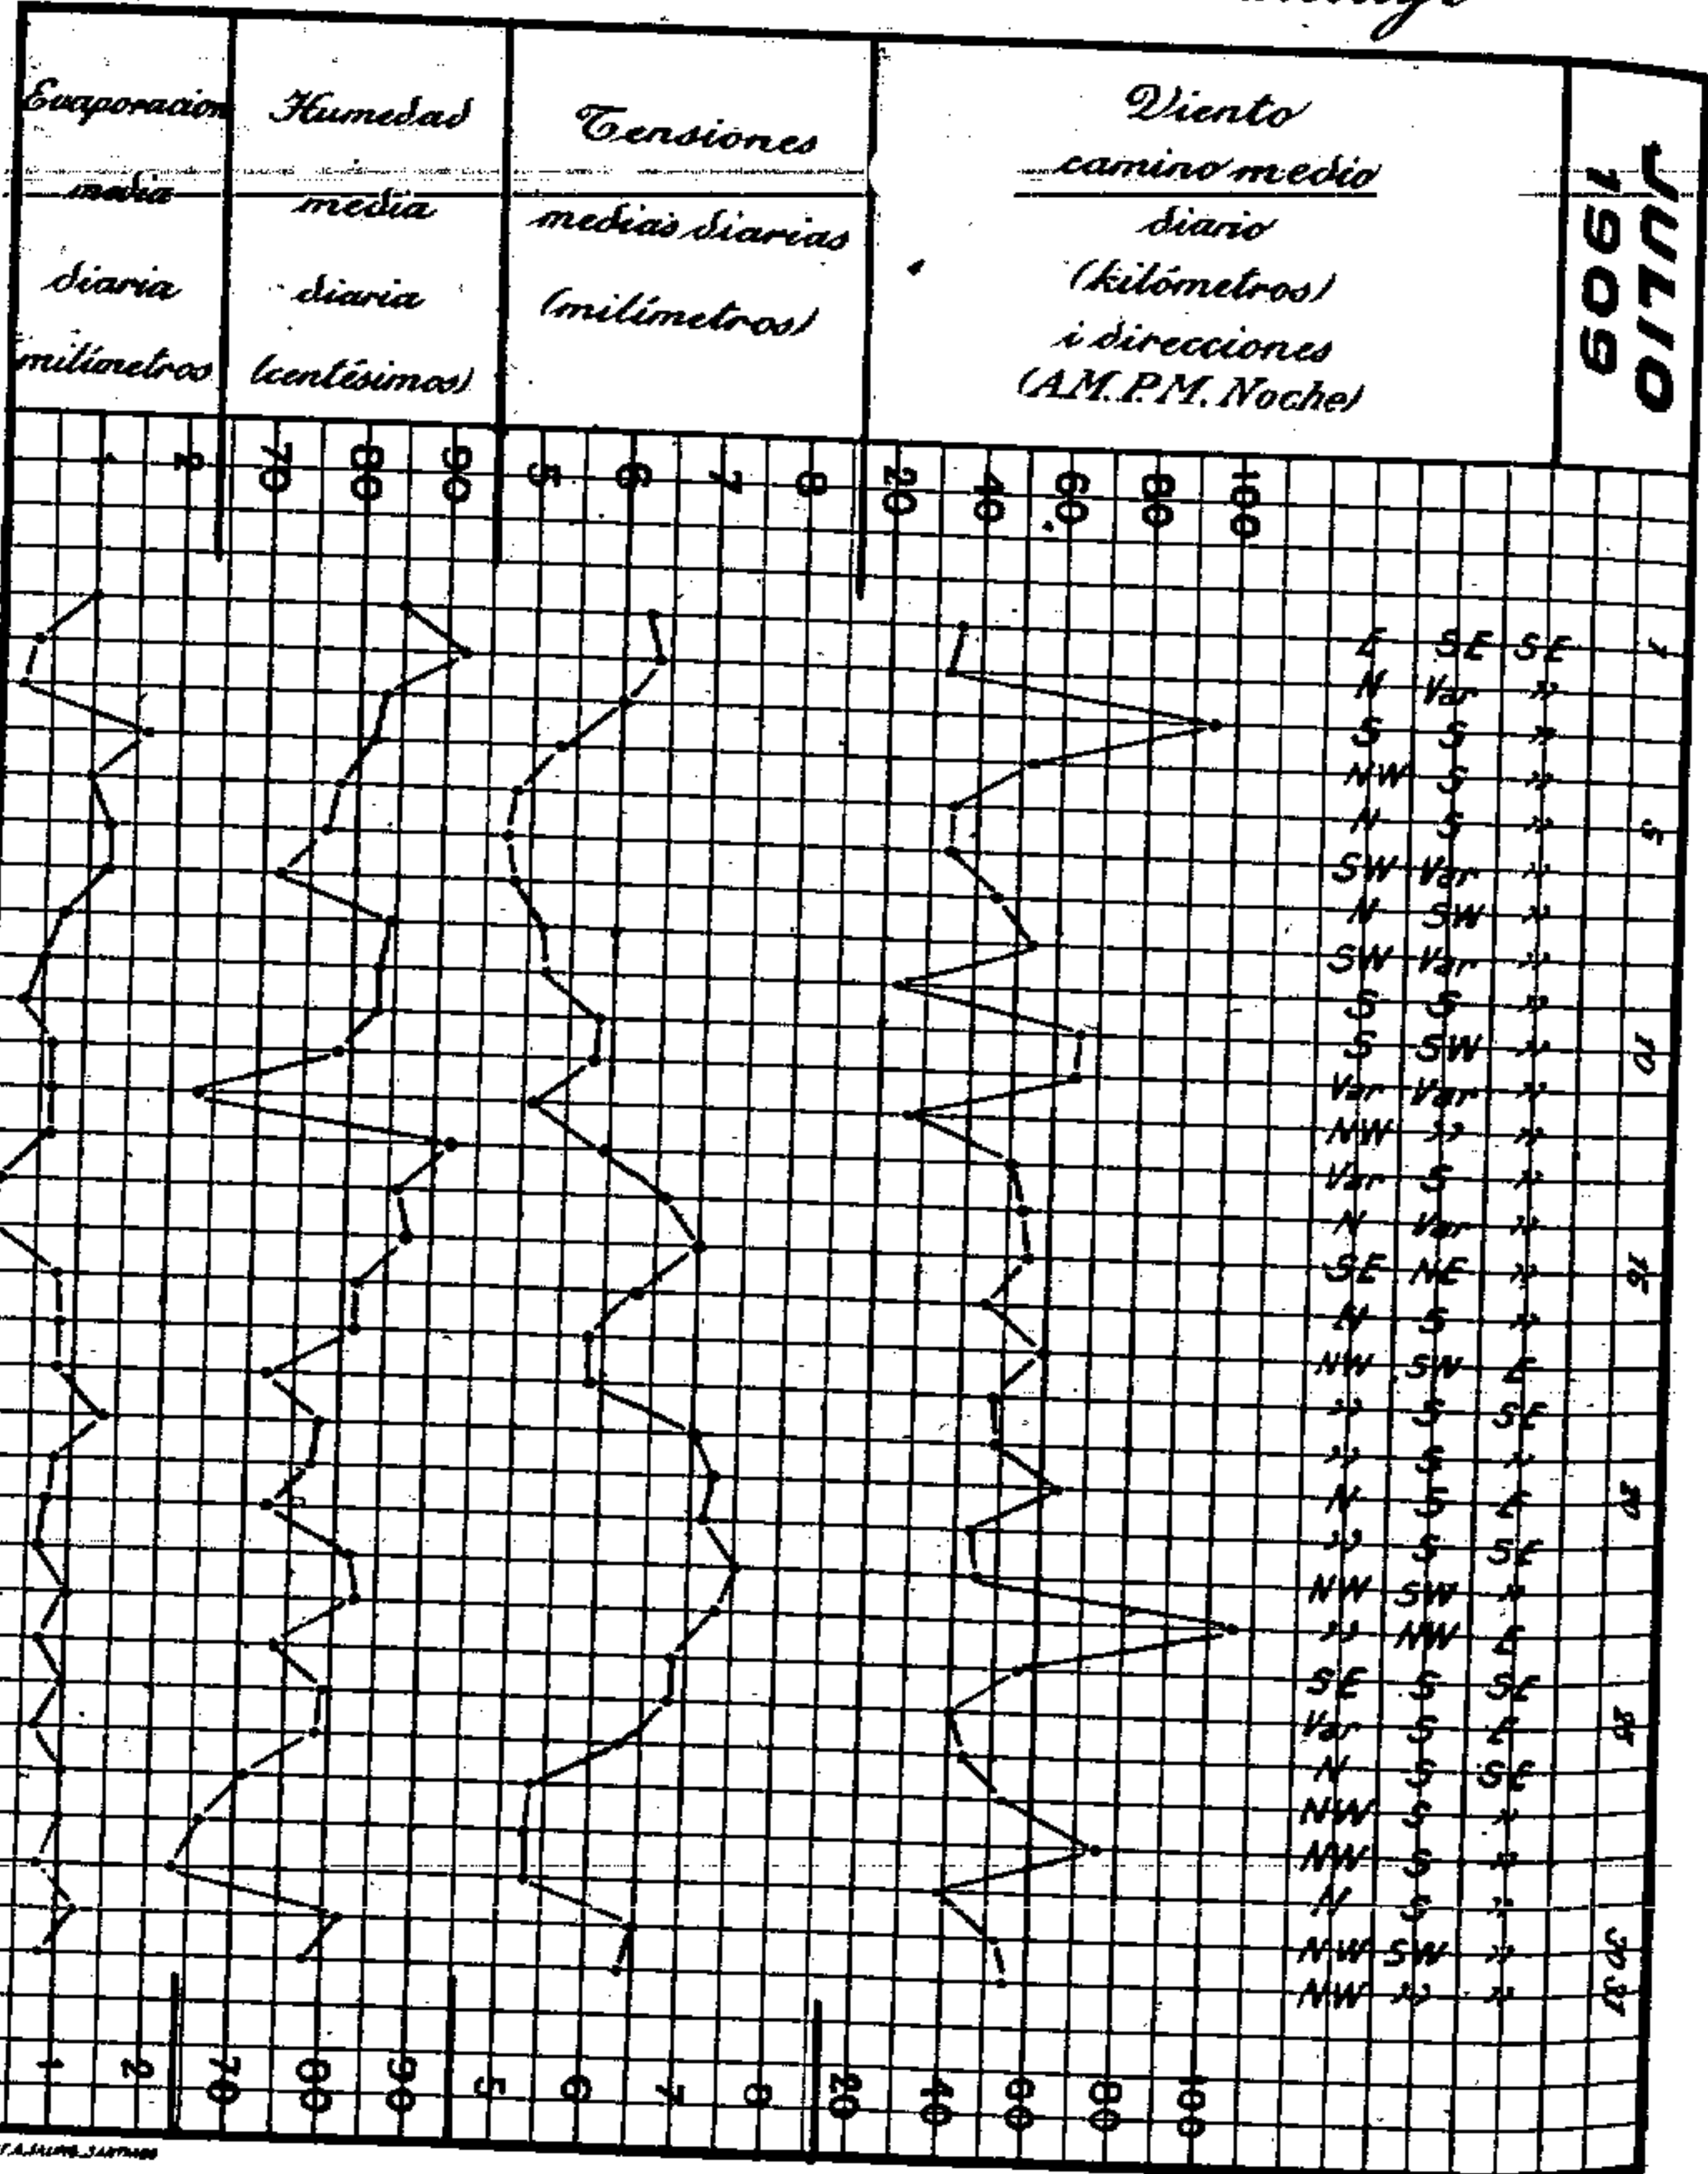 JULIO
1909
Evaporacion
media
diaria
milímetros
Humedad
media
diaria
(centésimos)
Tensiones
medias diarias
(milímetros)
Viento
camino medio
diario
(kilómetros)
i direcciones
(A.M. P.M. Noche)
1 2 70 80 90 5 6 7 8 20 40 60 80 100
E SE SE 1
N Var "
S S "
NW S "
N S " 5
SW Var "
N SW "
SW Var "
S S "
S SW " 10
Var Var "
NW " "
Var S "
N Var "
SE NE " 15
N S "
NW SW E
" S SE
" S "
N S E 20
" S SE
NW SW "
" NW E
SE S SE
Var S E 25
N S SE
NW S "
NW S "
N S "
NW SW " 30
NW " " 31
1 2 70 80 90 5 6 7 8 20 40 60 80 100